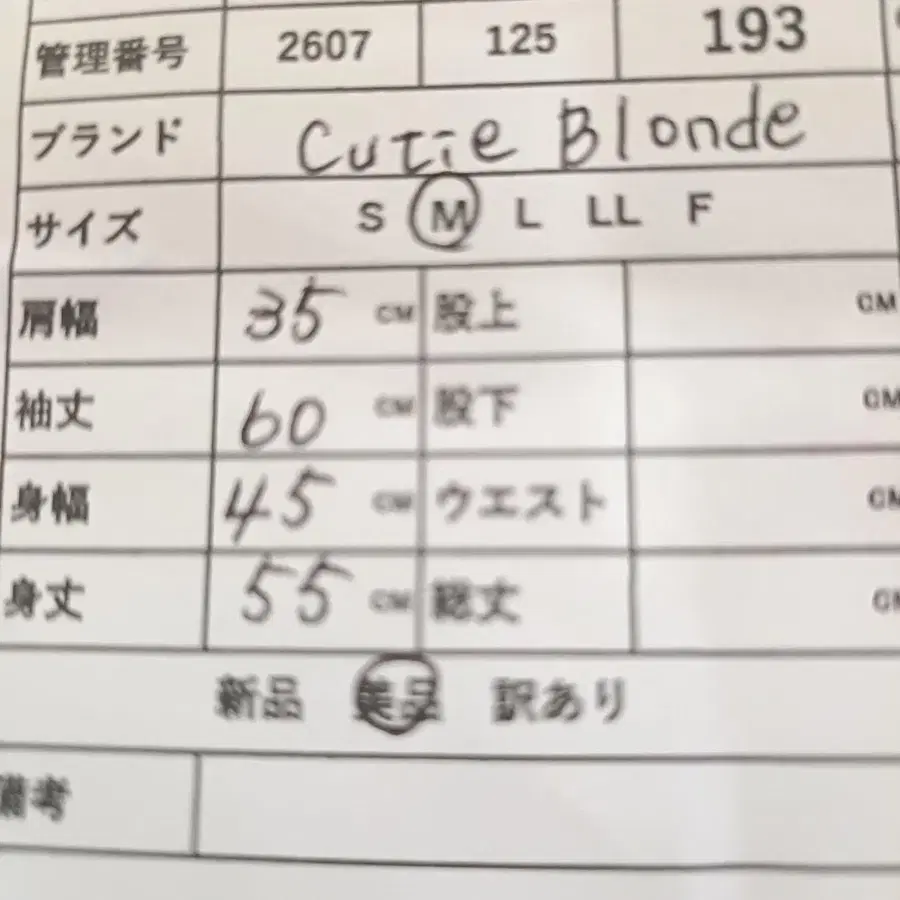 管理番号 2607 125 193
ブランド Cutie Blonde
サイズ S M L LL F
肩幅 35 CM 股上 CM
袖丈 60 CM 股下 CM
身幅 45 CM ウエスト CM
身丈 55 CM 総丈 CM
新品 美品 訳あり
備考